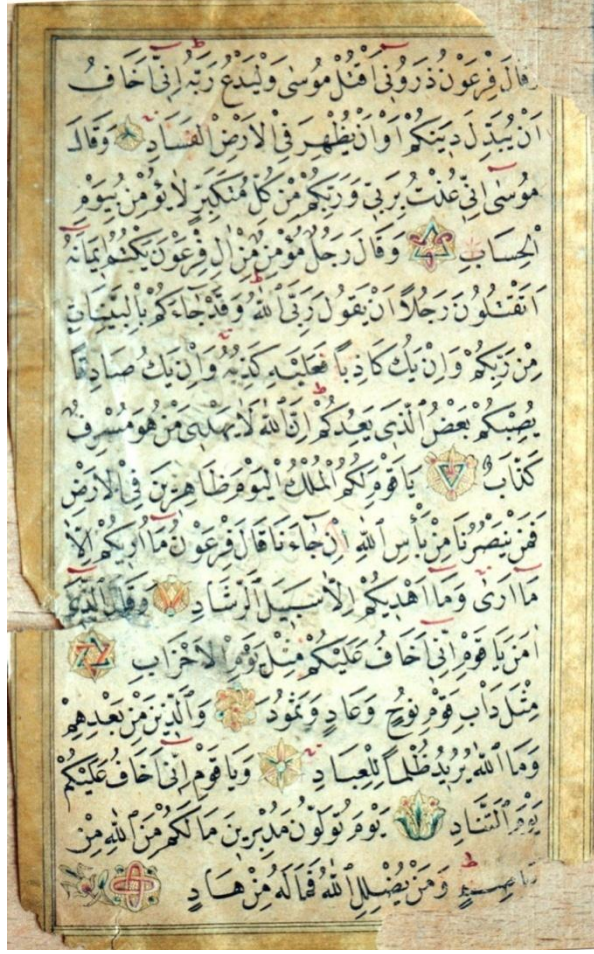 وَقَالَ فِرْعَوْنُ ذَرُونِى اَقْتُلْ مُوسٰى وَلْيَدْعُ رَبَّهُ اِنِّى اَخَافُ
اَنْ يُبَدِّلَ دِينَكُمْ اَوْ اَنْ يُظْهِرَ فِى الْاَرْضِ الْفَسَادَ وَقَالَ
مُوسٰى اِنِّى عُذْتُ بِرَبِّى وَرَبِّكُمْ مِنْ كُلِّ مُتَكَبِّرٍ لَا يُؤْمِنُ بِيَوْمِ
الْحِسَابِ وَقَالَ رَجُلٌ مُؤْمِنٌ مِنْ اٰلِ فِرْعَوْنَ يَكْتُمُ اِيمَانَهُ
اَتَقْتُلُونَ رَجُلًا اَنْ يَقُولَ رَبِّىَ اللّٰهُ وَقَدْ جَاءَكُمْ بِالْبَيِّنَاتِ
مِنْ رَبِّكُمْ وَاِنْ يَكُ كَاذِبًا فَعَلَيْهِ كَذِبُهُ وَاِنْ يَكُ صَادِقًا
يُصِبْكُمْ بَعْضُ الَّذِى يَعِدُكُمْ اِنَّ اللّٰهَ لَا يَهْدِى مَنْ هُوَ مُسْرِفٌ
كَذَّابٌ يَا قَوْمِ لَكُمُ الْمُلْكُ الْيَوْمَ ظَاهِرِينَ فِى الْاَرْضِ
فَمَنْ يَنْصُرُنَا مِنْ بَأْسِ اللّٰهِ اِنْ جَاءَنَا قَالَ فِرْعَوْنُ مَا اُرِيكُمْ اِلَّا
مَا اَرٰى وَمَا اَهْدِيكُمْ اِلَّا سَبِيلَ الرَّشَادِ وَقَالَ الَّذِى
اٰمَنَ يَا قَوْمِ اِنِّى اَخَافُ عَلَيْكُمْ مِثْلَ يَوْمِ الْاَحْزَابِ
مِثْلَ دَاْبِ قَوْمِ نُوحٍ وَعَادٍ وَثَمُودَ وَالَّذِينَ مِنْ بَعْدِهِمْ
وَمَا اللّٰهُ يُرِيدُ ظُلْمًا لِلْعِبَادِ وَيَا قَوْمِ اِنِّى اَخَافُ عَلَيْكُمْ
يَوْمَ التَّنَادِ يَوْمَ تُوَلُّونَ مُدْبِرِينَ مَا لَكُمْ مِنَ اللّٰهِ مِنْ
عَاصِمٍ وَمَنْ يُضْلِلِ اللّٰهُ فَمَا لَهُ مِنْ هَادٍ